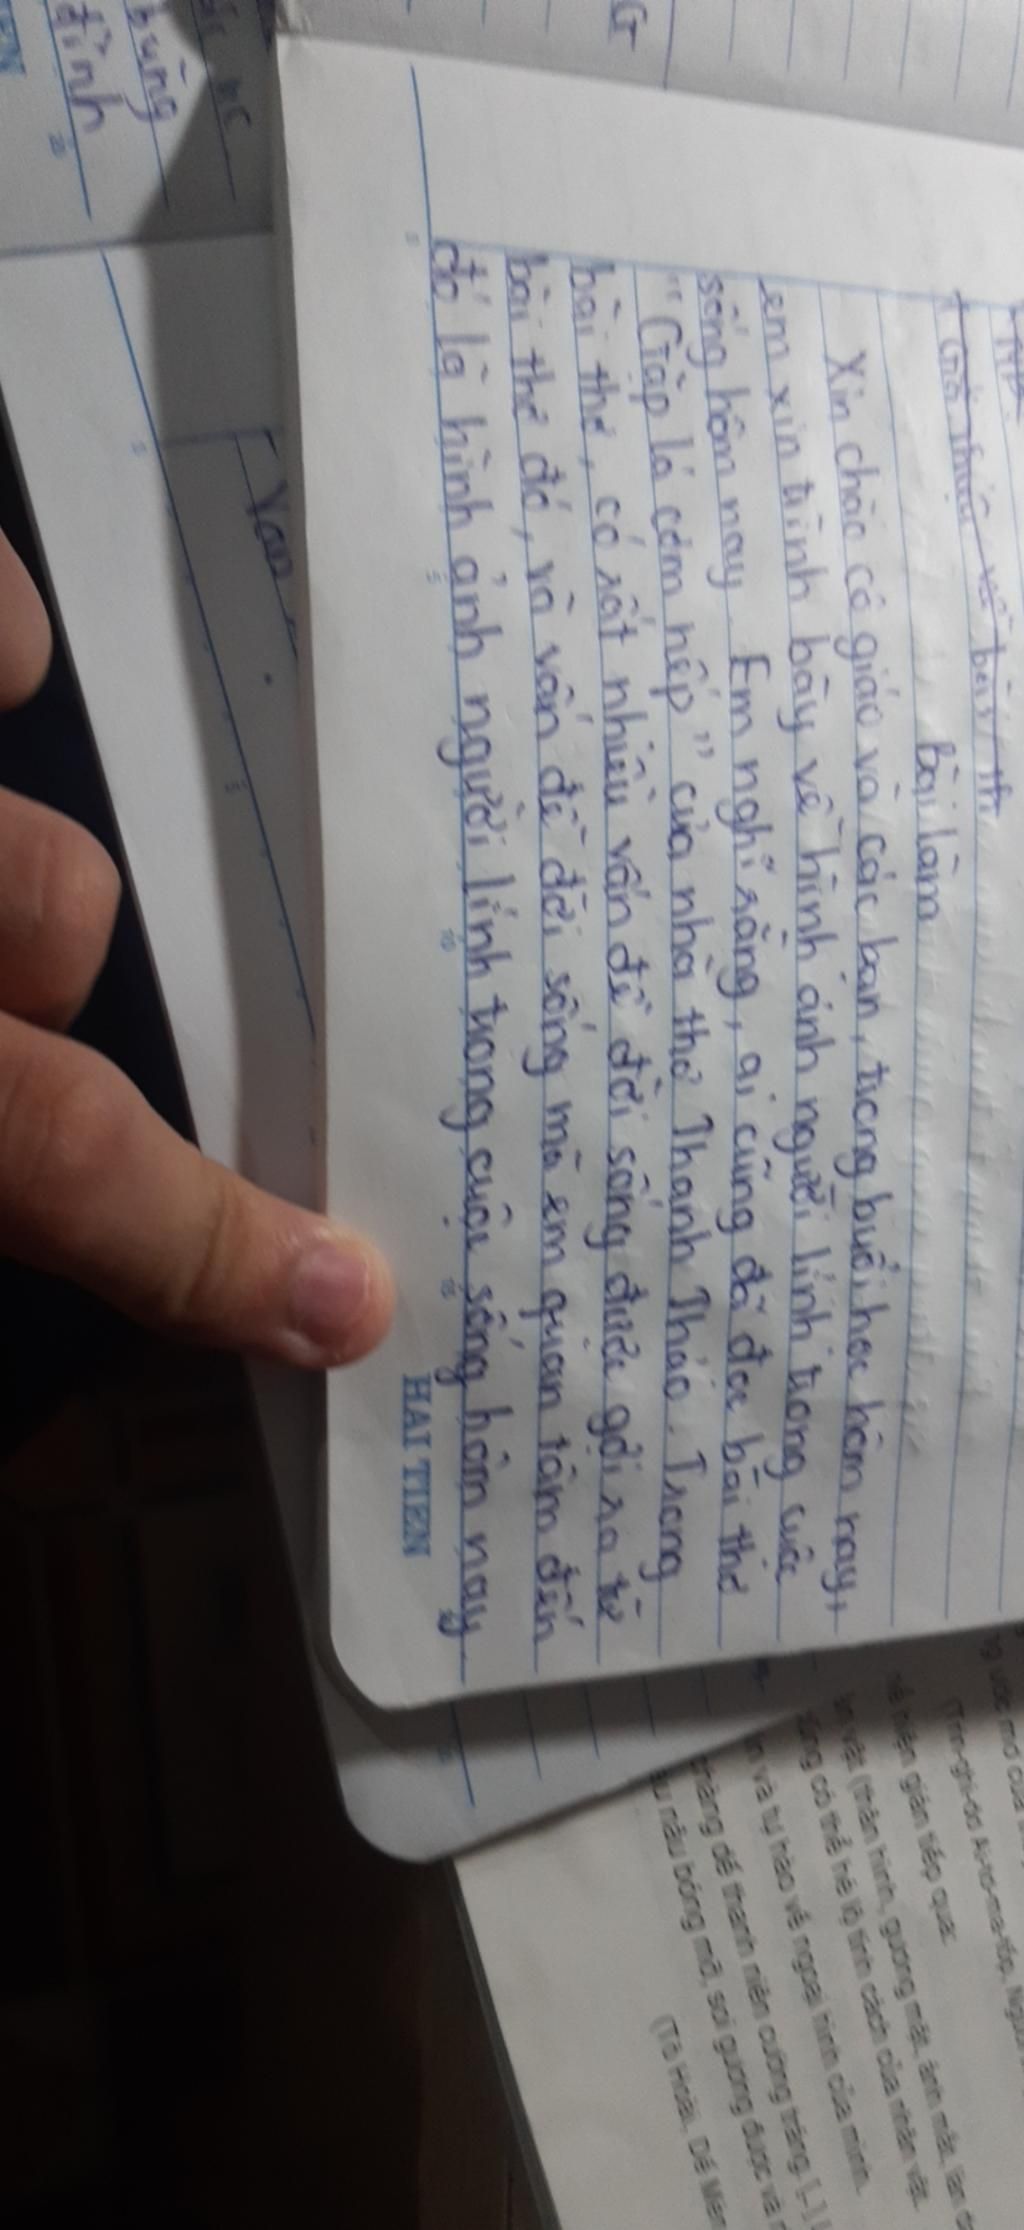 G
bài th
Bài làm
Xin chào cô giáo và các bạn, trong buổi học hôm nay,
em xin trình bày về hình ảnh người lính trong cuộc
sống hôm nay. Em nghĩ rằng, ai cũng đã đọc bài thơ
"Gặp lá cơm nếp" của nhà thơ Thanh Thảo. Trong
bài thơ, có rất nhiều vấn đề đời sống được gợi ra từ
bài thơ đó, và vấn đề đời sống mà em quan tâm đến
đó là hình ảnh người lính trong cuộc sống hôm nay
HẢI TIẾN
5
10
15
Văn
bụng
đình
TIEN
(Tri-ghi-dơ Ai-tơ-ma-tốp,
hiện gián tiếp qua:
vật (thân hình, gương mặt, ánh mắt, làn
cũng có thể hé lộ tính cách của nhân vật.
và tự hào về ngoại hình của mình.
chàng dế thanh niên cường tráng. [...]
nâu bóng mỡ, soi gương được và
(Tô Hoài, Dế Mèn